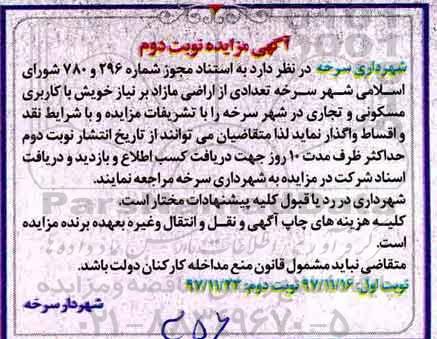 آگهی مزایده نوبت دوم
شهرداری سرخه در نظر دارد به استناد مجوز شماره ۲۹۶ و ۷۸۰ شورای
اسلامی شهر سرخه تعدادی از اراضی مازاد بر نیاز خویش با کاربری
مسکونی و تجاری در شهر سرخه را با تشریفات مزایده و با شرایط نقد
و اقساط واگذار نماید لذا متقاضیان می توانند از تاریخ انتشار نوبت دوم
حداکثر ظرف مدت ۱۰ روز جهت دریافت کسب اطلاع و بازدید و دریافت
اسناد شرکت در مزایده به شهرداری سرخه مراجعه نمایند.
شهرداری در رد یا قبول کلیه پیشنهادات مختار است.
کلیه هزینه های چاپ آگهی و نقل و انتقال وغیره بعهده برنده مزایده
است.
متقاضی نباید مشمول قانون منع مداخله کارکنان دولت باشد.
نوبت اول: ۹۷/۱۱/۱۶ نوبت دوم: ۹۷/۱۱/۲۳
شهردار سرخه